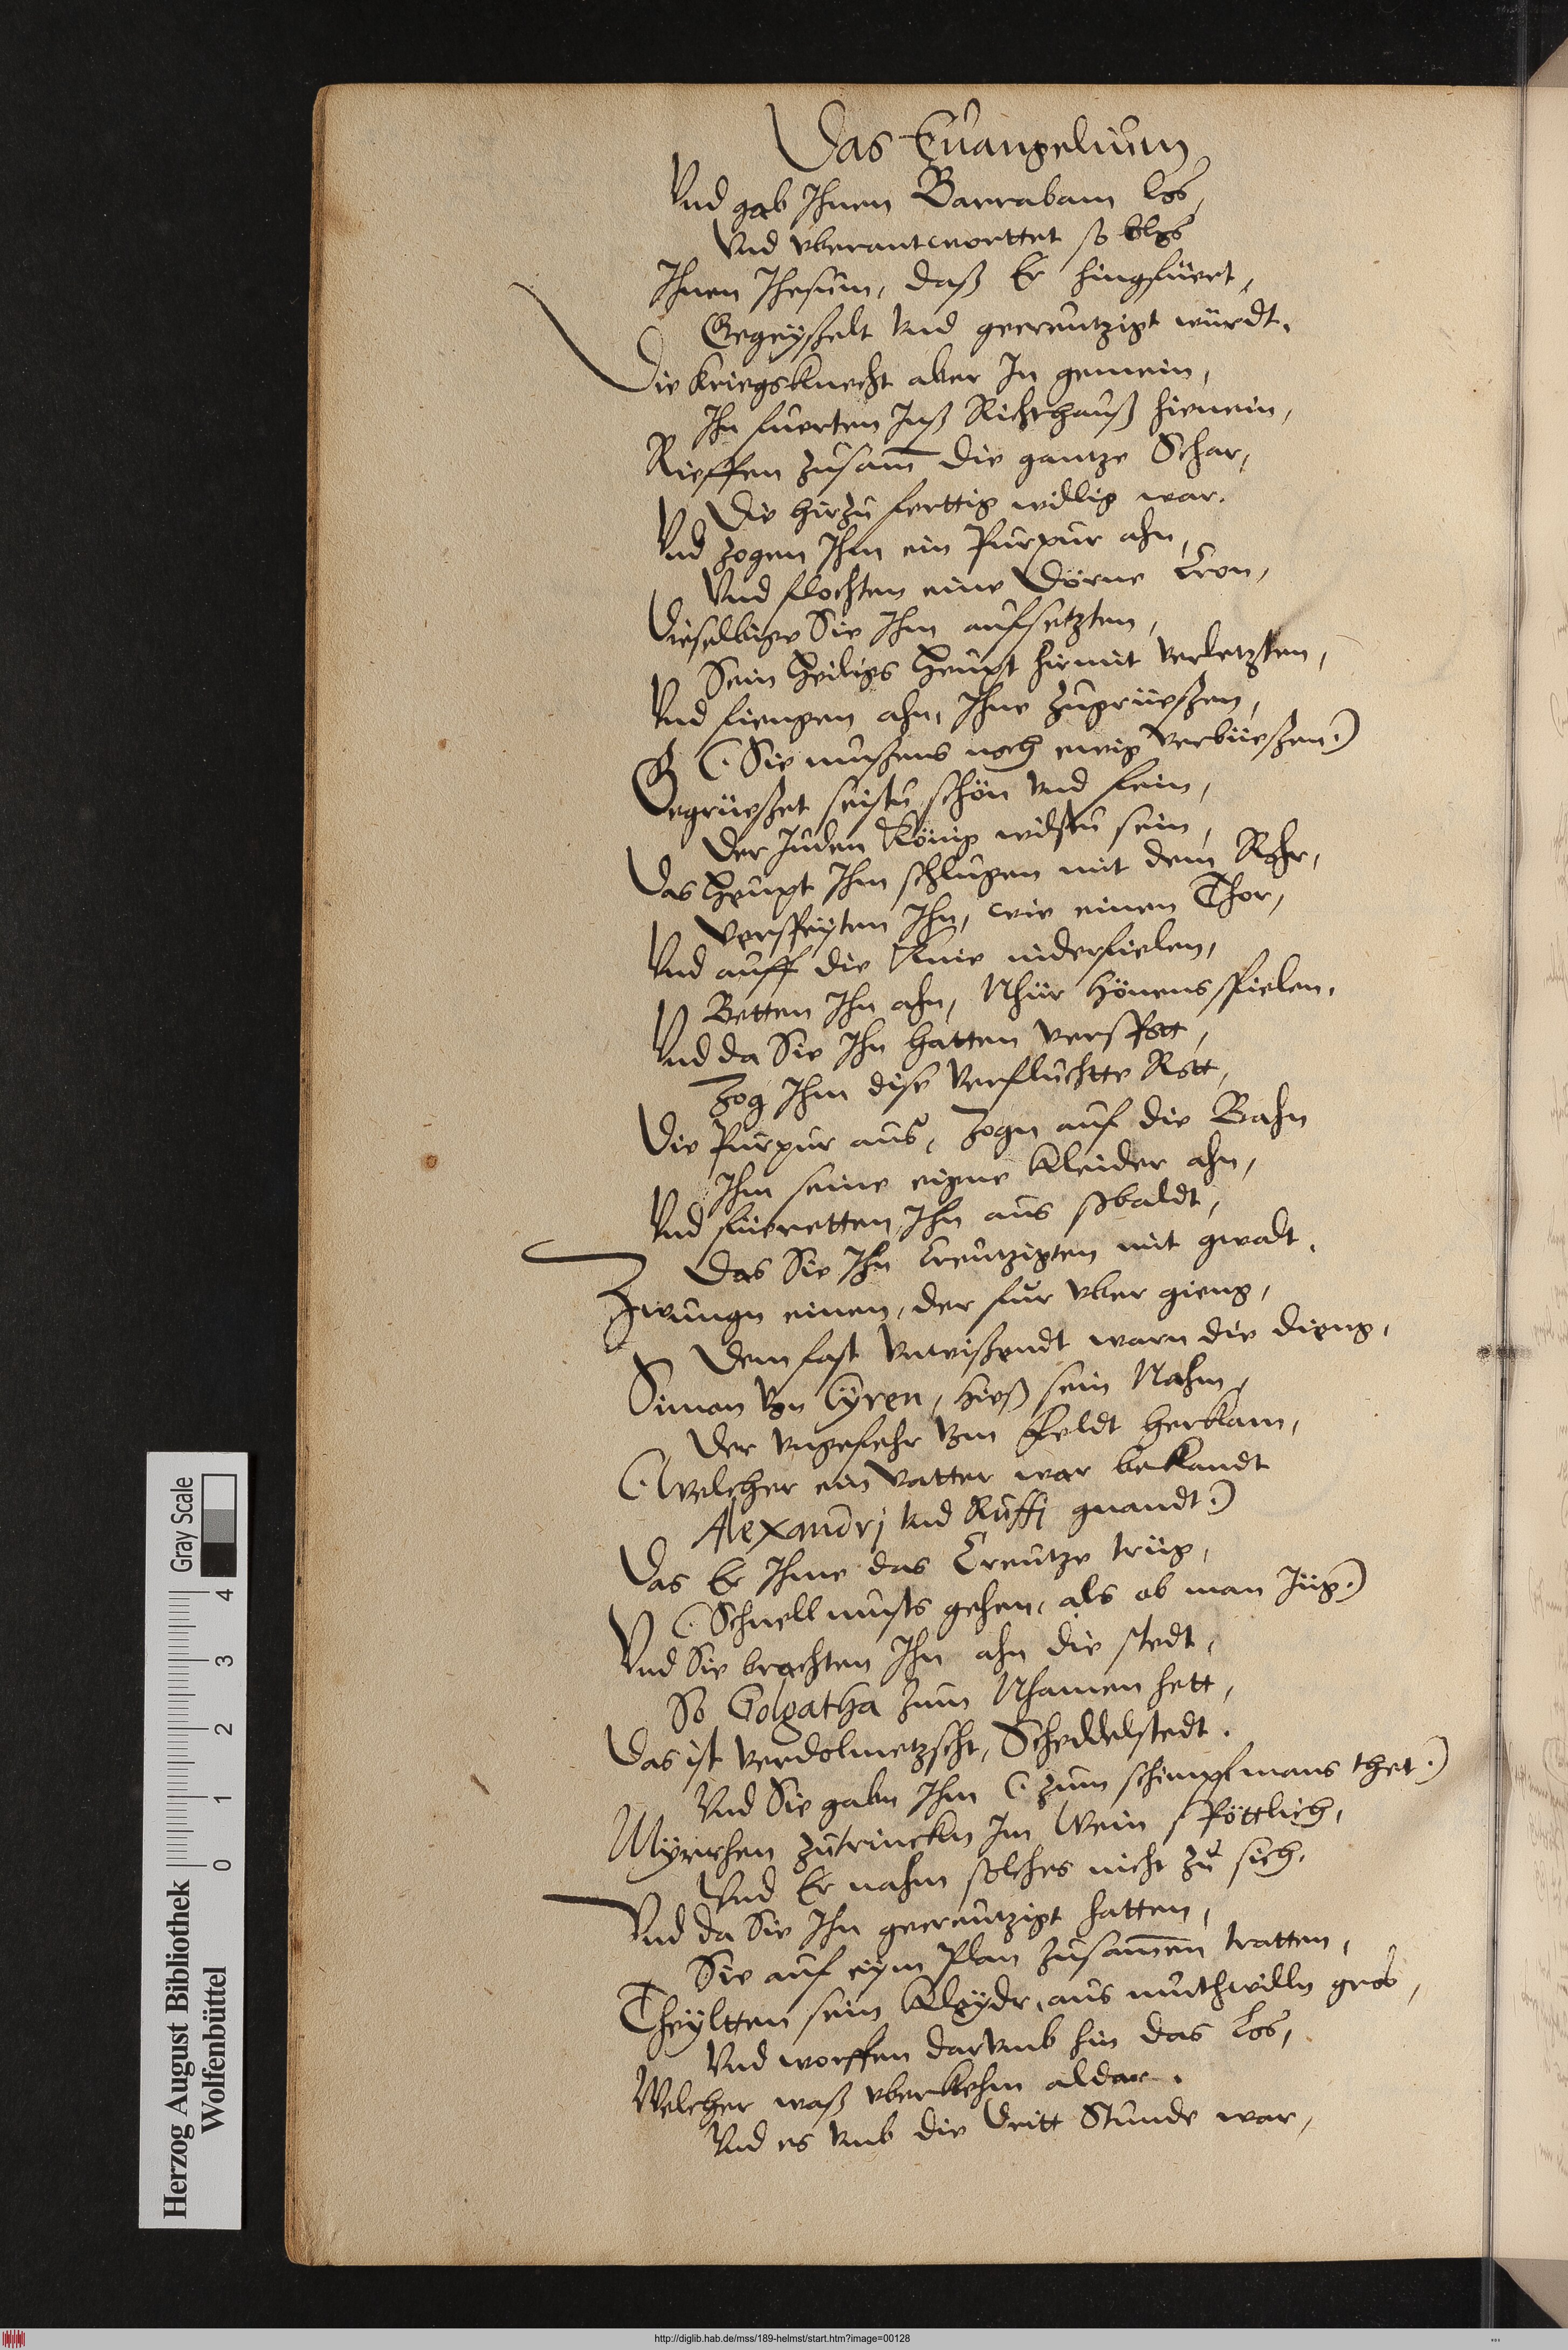 Das Euangelium
Vnd gab Ihnen Barrabam los,
Vnd vberantworttet so blos
Ihnen Ihesum, daß Er hingfüert,
Gegeyßelt vnd gecreutzigt würdt.
Die Kriegsknecht aber In gemein,
Ihn fuerten Inß Richthauß hienein,
Rieffen zusam̄ die gantze Schar,
Die hirzu ferttig willig war.
Vnd zogen Ihm ein Purpur ahn,
Vnd flochten eine Dörne Cron,
Dieselbige Sie Ihm aufsetzten,
Sein Heiligs Heupt hirmit verletzten,
Vnd fiengen ahn, Ihne zugrüeßen,
(. Sie mußens noch ewig verbüeßen.)
Gegrüeßet seistu schön vnd fein,
Der Juden König wilstu sein,
Das Heupt Ihm schlugen mit dem Rohr,
Verspeyten Ihn, wie einen Thor,
Vnd auff die Knie niderfielen,
Betten Ihn ahn, Nhür hönens spielen.
Vnd da Sie Ihn hatten verspott,
Zog Ihm dise verfluchtte Rott,
Die Purpur aus, Zogn auf die Bahn
Ihm seine eigne Kleider ahn,
Vnd füeretten Ihn aus sobaldt,
Das Sie Ihn Creutzigten mit gwalt.
Zwungn einen, der fur vber gieng,
Dem fast vnwißendt warn die dieng,
Simon von Cyren, hieß sein Nahm,
Der vngefehr vom Feldt herkam,
(. Welcher ein vatter war bekandt
Alexandrj vnd Ruffj gnandt.)
Das Er Ihme das Creutze trüg,
(. Schnell musts gehen, als ob man Jüg.)
Vnd Sie brachten Ihn ahn die stedt,
So Golgatha zum Nhamen hett,
Das ist verdolmetzscht, Scheddelstedt.
Vnd Sie gabn Ihm (. zum schimpf mans thet.)
Myrrhen zutrinckn Im Wein spöttlich,
Vnd Er nahm solches nicht zu sich.
Vnd da Sie Ihn gecreutzigt hatten,
Sie auf eym Plan zusam̄en tratten,
Theyltten sein Kleydr, aus muthwilln gros,
Vnd worffen darvmb hin das Los,
Welcher waß vberkehm aldar.
Vnd es vmb die dritt Stunde war,
Herzog August Bibliothek
Wolfenbüttel
0 1 2 3 4
Gray Scale
http://diglib.hab.de/mss/189-helmst/start.htm?image=00128